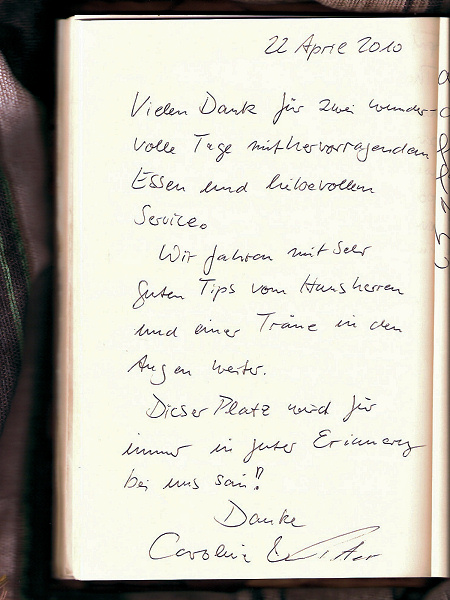 22 April 2010
Vielen Dank für zwei wunder-
volle Tage mit hervorragendem
Essen und liebevollem
Service.
Wir fahren mit sehr
guten Tips vom Hausherren
und einer Träne in den
Augen weiter.
Dieser Platz wird für
immer in guter Erinnerung
bei uns sein!!
Danke
Caroline &